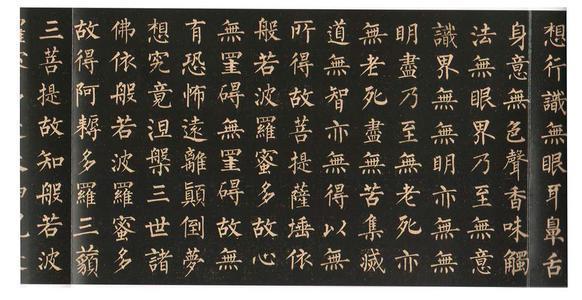 想行識無眼耳鼻舌
身意無色聲香味觸
法無眼界乃至無意
識界無無明亦無無
明盡乃至無老死亦
無老死盡無苦集滅
道無智亦無得以無
所得故菩提薩埵依
般若波羅蜜多故心
無罣碍無罣碍故無
有恐怖遠離顛倒夢
想究竟涅槃三世諸
佛依般若波羅蜜多
故得阿耨多羅三藐
三菩提故知般若波